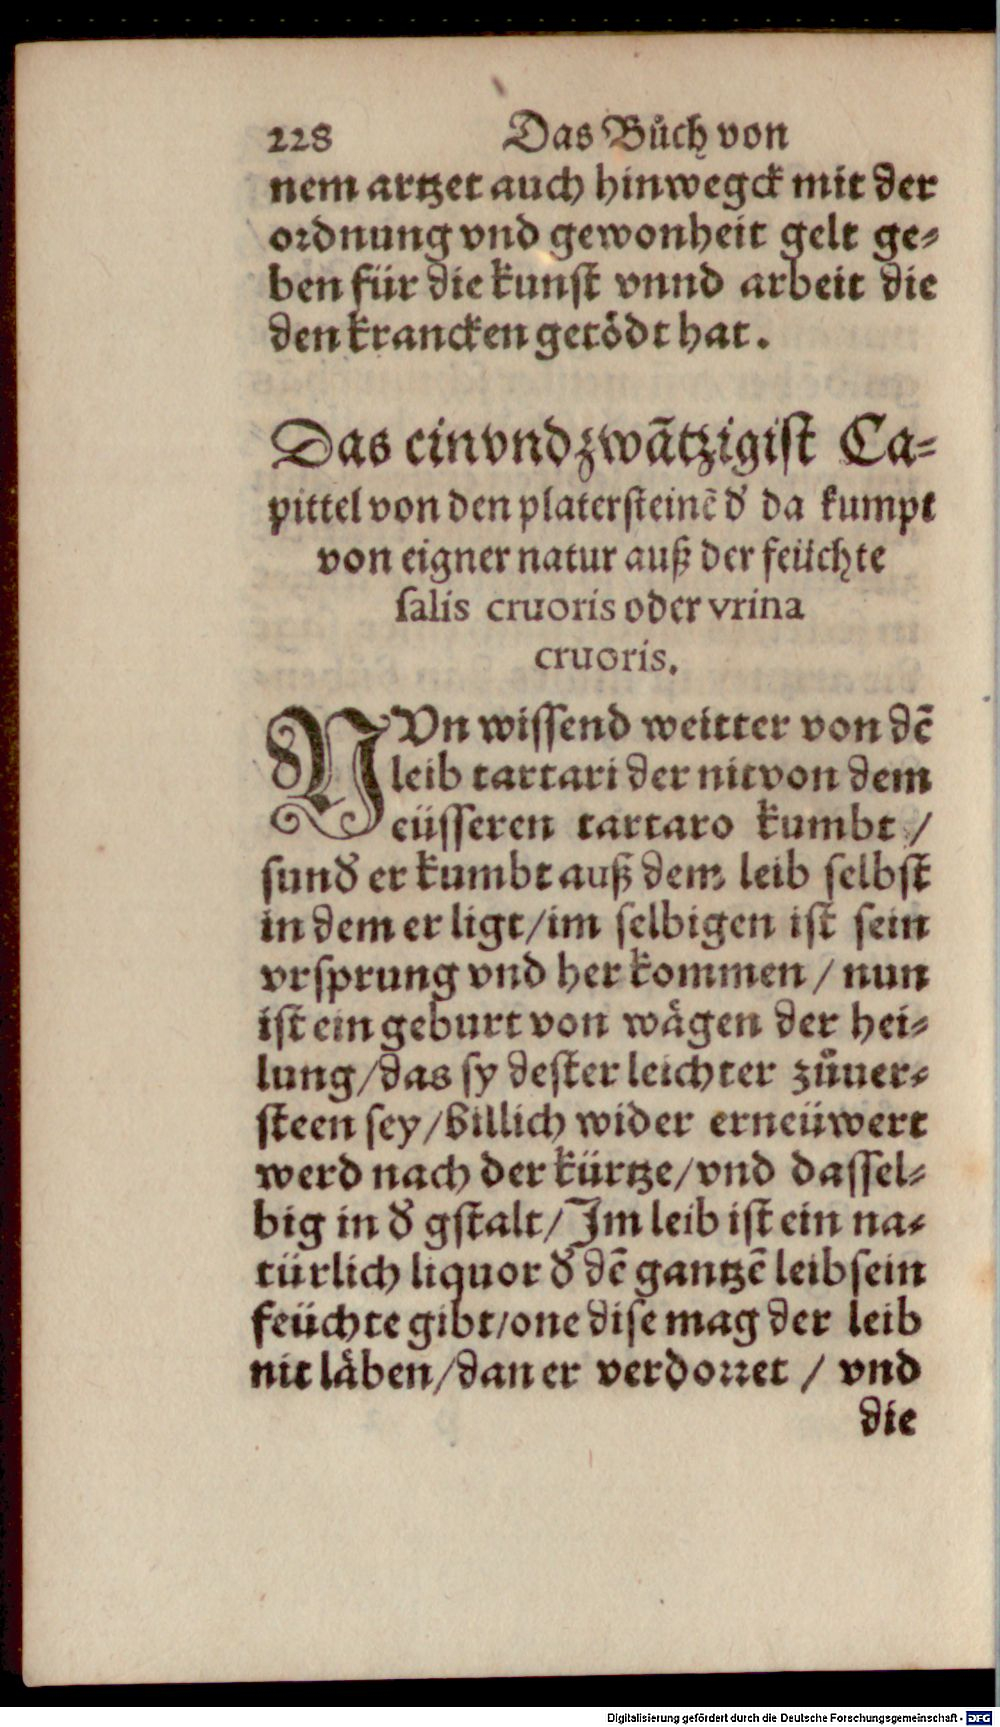 228 Das Bůch von
nem artzet auch hinwegck mit der
ordnung vnd gewonheit gelt ge⸗
ben für die kunst vnnd arbeit die
den krancken getödt hat.
Das einvndzwãtzigist Ca⸗
pittel von den platersteinẽ d' da kumpt
von eigner natur auß der feüchte
salis cruoris oder vrina
cruoris.
NVn wissend weitter von dẽ
leib tartari der nit von dem
eüsseren tartaro kumbt /
sund' er kumbt auß dem leib selbst
in dem er ligt/im selbigen ist sein
vrsprung vnd her kommen / nun
ist ein geburt von wägen der hei⸗
lung/das sy dester leichter zůuer⸗
steen sey/billich wider erneüwert
werd nach der kürtze/vnd dassel⸗
big in d' gstalt/Im leib ist ein na⸗
türlich liquor d' dẽ gantzẽ leib sein
feüchte gibt/one dise mag der leib
nit läben/dan er verdorret / vnd
die
Digitalisierung gefördert durch die Deutsche Forschungsgemeinschaft - DFG